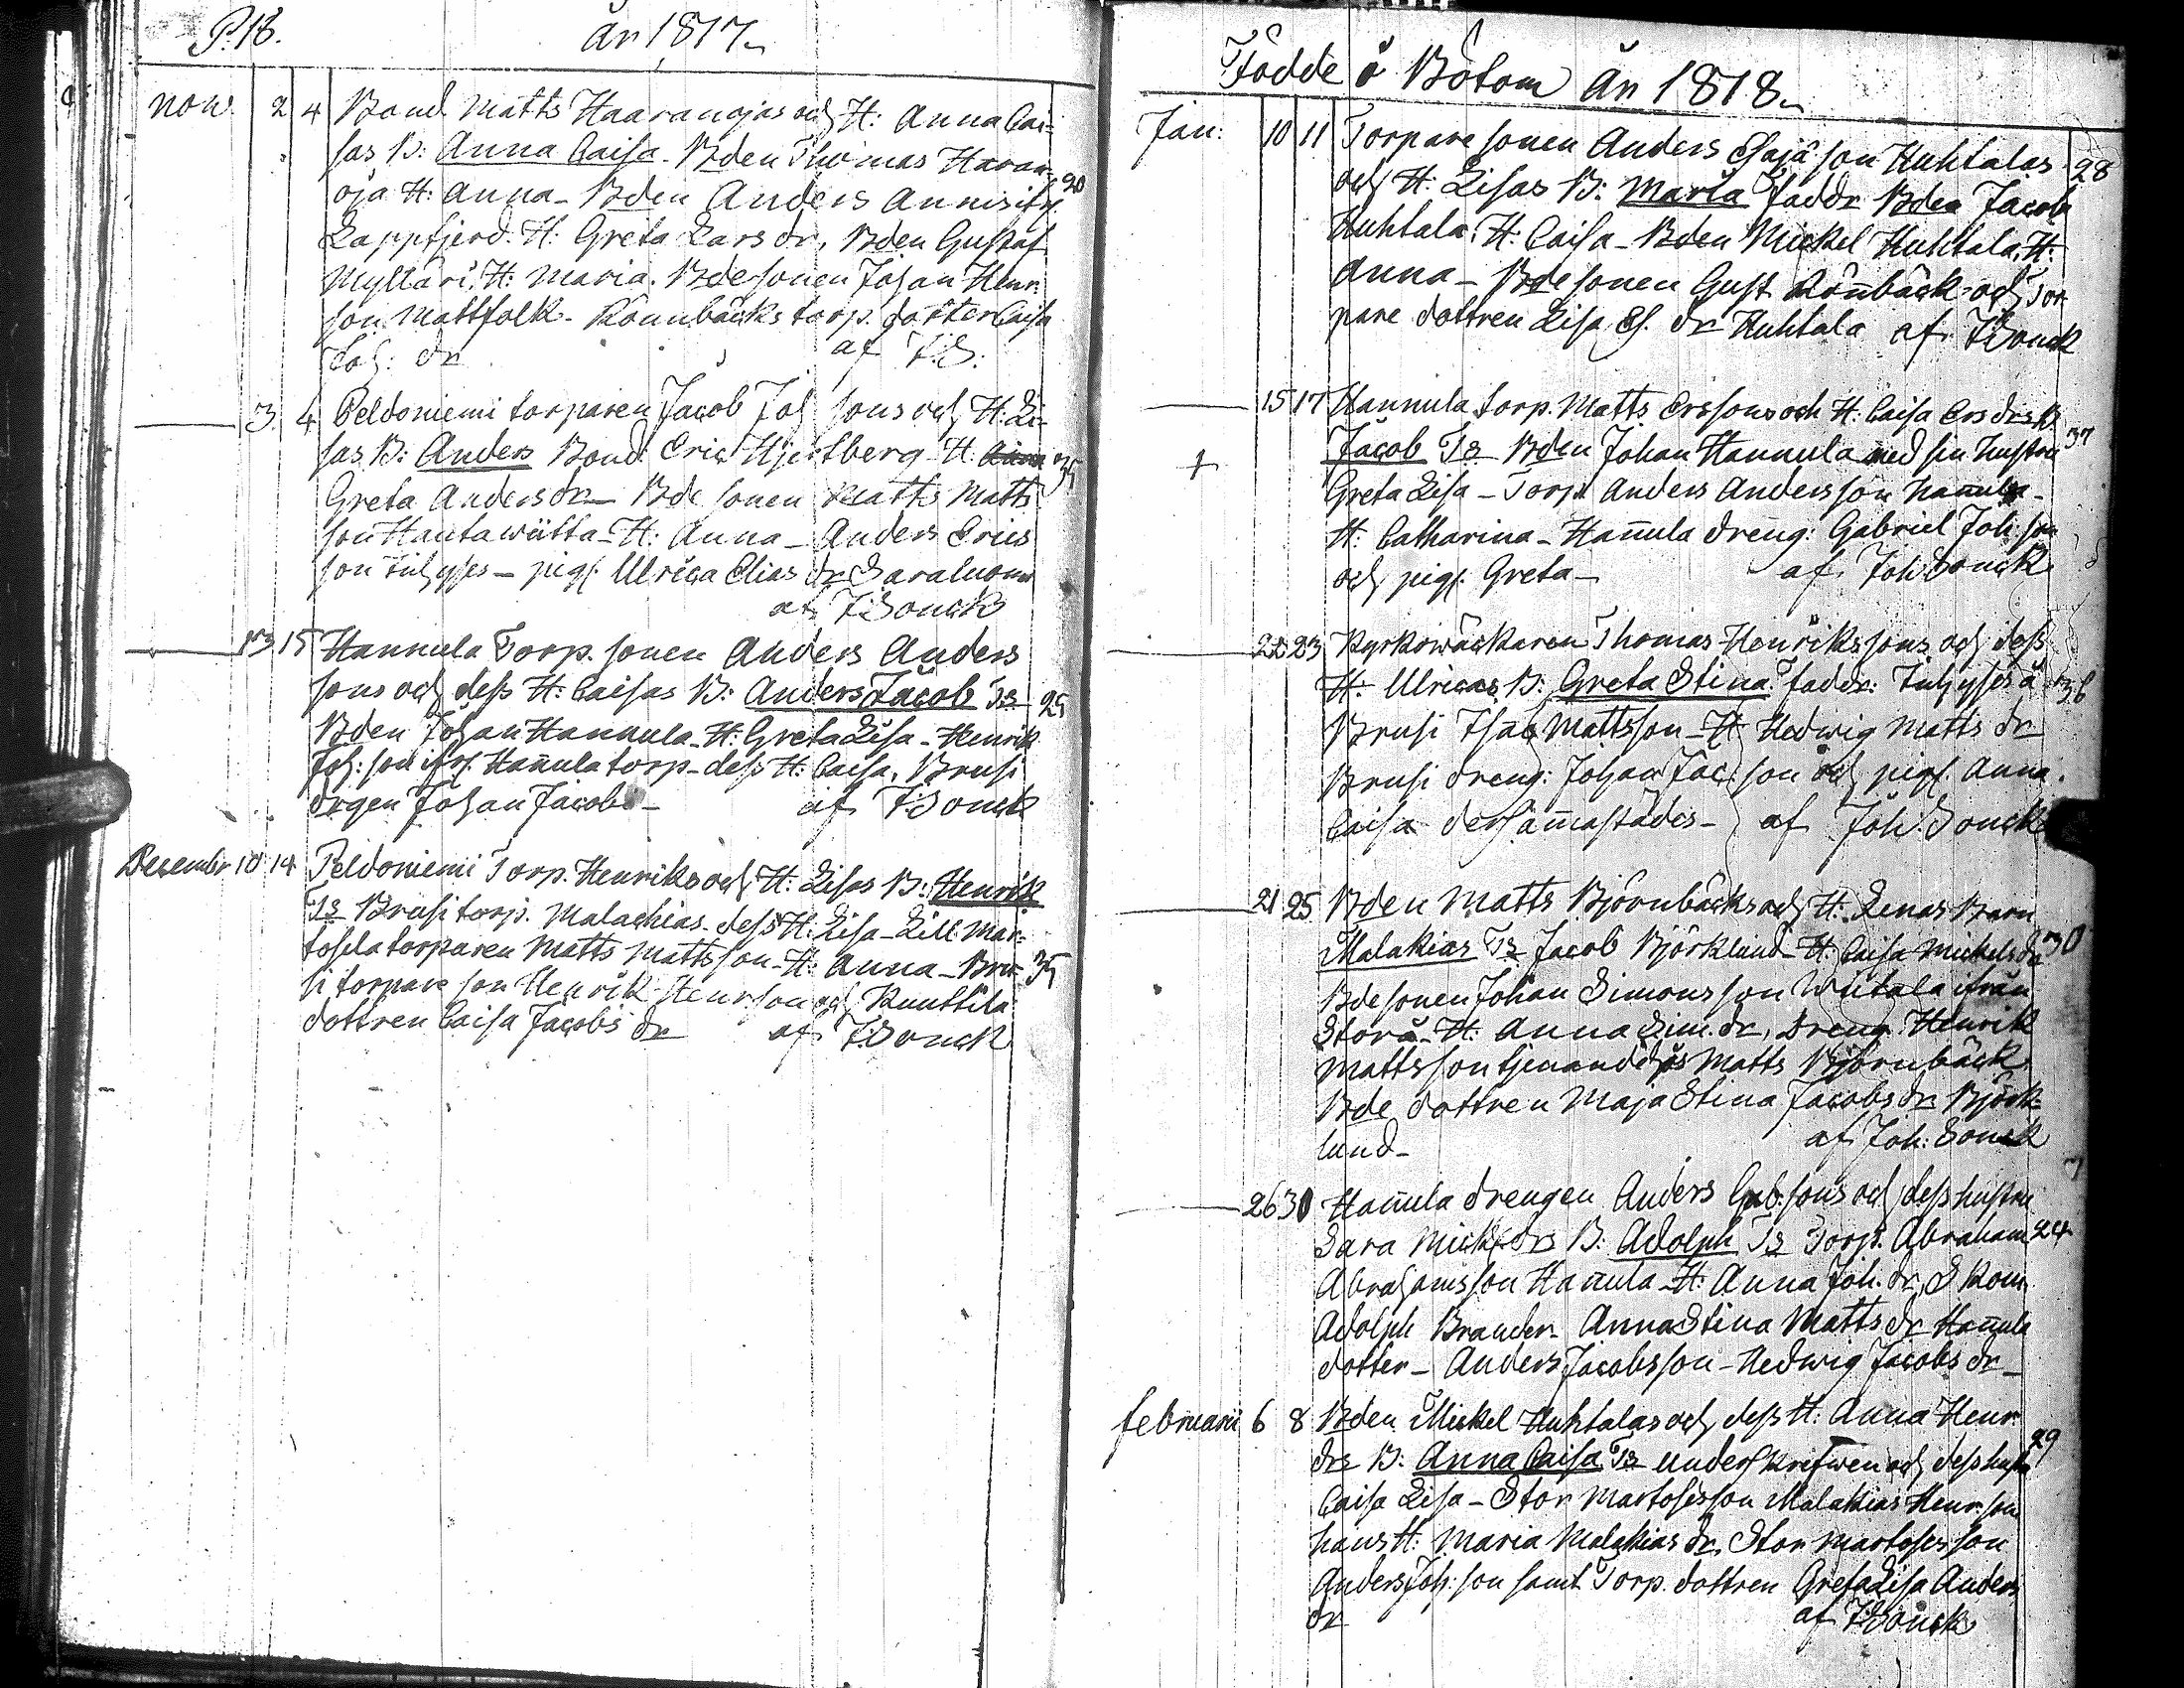 P. 18. år 1817.
nov. 2 4 Bond. Matts Haaranojas och H: Anna Cai-
sas B: Anna Caisa. Bden Thomas Haran- 20
oja H: Anna - Bden Anders
Lappfjerd. H: Greta Lars dr, Bden Gustaf
Myllari, H: Maria. Bdesonen Johan Henr.
son Mattfolk - Rönnbäcks torp. dotter Caisa
Joh: dr af J.S.
3. 4 Peldoniemi torparen Jacob Joh sons och H: Li-
sas B: Anders Bond. Eric Hjertberg H: Anna 35
Greta Anders dr - Bde sonen Matts Matts
son Hautawiitta - H: Anna - Anders Erics
son Inhyses - pig. Ulrica Elias dr Saraluoma
af J Sonck
13 15 Hannula Torp. sonen Anders Anders
sons och dess H: Caisas B: Anders Jacob Ts 25
Bden Johan Hannula - H: Greta Lisa - Henrik
Joh: son ifr. Hannula torp - dess H: Caisa, Brusi
drgen Johan Jacobs - af J Sonck
December 10 14 Peldoniemi Torp. Henriks och H: Lisas B: Henrik
Ts Brusi torp. Malachias - dess H: Lisa - Lill Mar-
tosela torparen Matts Mattsson - H: Anna - Bru- 35
si torpare son Henrik Henrson och Knuttila
dottren Caisa Jacobs dr af J. Sonck
Födde i Bötom år 1818.
Jan: 10 11 Torpare sonen Anders Esajæ son Huhtalas 28
och H: Lisas B: Maria faddr Bden Jacob
Huhtala, H: Caisa - Bden Mickel Huhtala, H:
Anna - Bdesonen Gust Rönnbäck och Tor-
pare dottren Lisa Es. dr Huhtala af J Sonck
15 17 Hannula torp. Matts Erssons och H: Caisa Ers drs B.
+ Jacob Ts Bden Johan Hannula med sin hustru 37
Greta Lisa - Torp. Anders Andersson Hannula -
H: Catharina - Hannula dreng: Gabriel Joh: son
och pig. Greta - af Joh Sonck
22 23 Kyrkowäckaren Thomas Henrikssons och dess
H: Ulricas B: Greta Stina. faddr: Inhyses å 36
Brusi Isac Mattsson - H Hedwig Matts dr
Brusi dreng: Johan Jac: son och pig. Anna
Caisa dersammastädes - af Joh. Sonck
21 25 Bden Matts Björnbäcks och H: Lenas Barn
Malakias Ts Jacob Björklund - H: Caisa Mickels dr 30
Bdesonen Johan Simonsson Wiitala ifrån
Storå - H: Anna Sim. dr, Dreng. Henrik
Mattsson tjenande hos Matts Björnbäck
Bde dottren Maja Stina Jacobs dr Björk-
lund - af Joh: Sonck
26 30 Hannula drengen Anders Gab: sons och dess hustru
Sara Mick: drs B: Adolph Ts Torp. Abraham 24
Abrahamsson Hannula - H: Anna Joh. dr, Skom.
Adolph Brander - Anna Stina Matts dr Hannula
dotter - Anders Jacobsson - Hedwig Jacobs dr -
februarii 6 8 Bden Mickel Huhtalas och dess H: Anna Henr.
drs B: Anna Caisa Ts Underskrifwen och dess hustru 29
Caisa Lisa - Stor Martosesson Malakias Henr. son
hans H: Maria Malakias dr, Stor Martosesson
Anders Joh: son samt Torp. dottren Greta Lisa Anders
dr af J Sonck